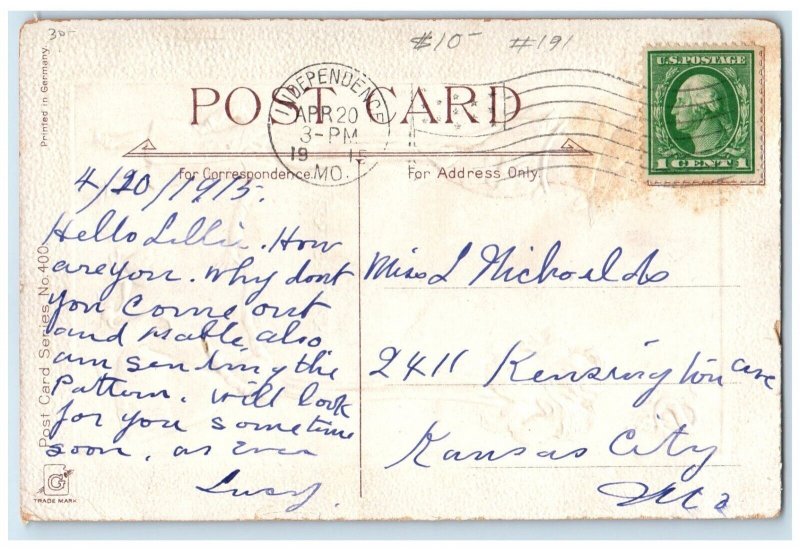 30-
$10- #191
Printed in Germany.
POST CARD
INDEPENDENCE
APR 20
3-PM
19 15
MO.
U.S. POSTAGE
1 CENT 1
For Correspondence.
For Address Only.
Post Card Series No. 400
G
TRADE MARK
4/20/1915.
Hello Lillie. How
are you. Why dont
you come out
and Mable also
am sending the
pattern. Will look
for you sometime
soon, as Ever
Lucy.
Miss L Michaelds
2411 Kensington ave
Kansas City
Mo